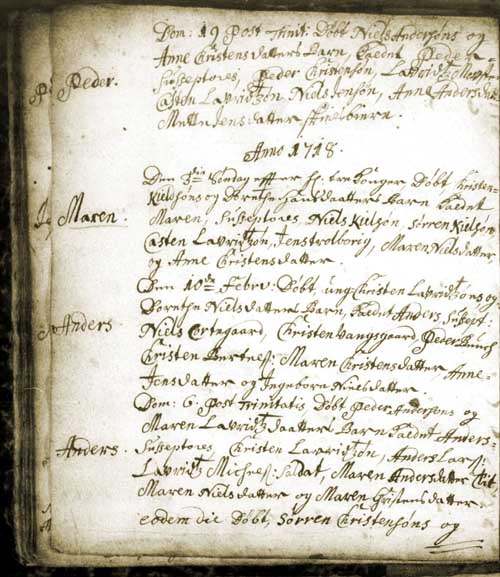 Dom: 19 Post Trinit: Døbt Niels Andersøns og
Anne Christensdatters Barn, Kaldet Peder
Peder. Susseptores, Peder Christensøn, Lavridtz
Casten Lavridtzøn, Niels Jensøn, Anne Andersdatter
Mette Jensdatter
Anno 1718.
Den 3die Søndag effter h: tre Konger, Døbt Kristen
Kieldsøns og Dorethe Barn Kaldet
Maren. Maren, Susseptores, Niels Kielsøn, Sørren Kielsøn
Casten Lavridtzøn, Jens Maren Nielsdatter
og Anne Christensdatter.
Den 10de Febrv: Døbt, ung Christen Lavridtzøns og
Dorethe Nielsdatters Barn, Kaldet Anders, Suscept:
Anders Niels Christen Vangsgaard, Peder
Christen Bertels: Maren Christensdatter, Anne
Jensdatter og Ingeborn Nielsdatter
Dom: 6: Post Trinitatis Døbt Peder Andersøns og
Maren Lavridtzdaatters Barn Kaldet Anders
Anders. Susseptores Christen Lavridtzøn, Anders Lars:
Lavridtz Michels: Saldat, Maren Andersdatter
Maren Nielsdatter og Maren Christensdatter
eodem die Døbt, Sørren Christensøns og